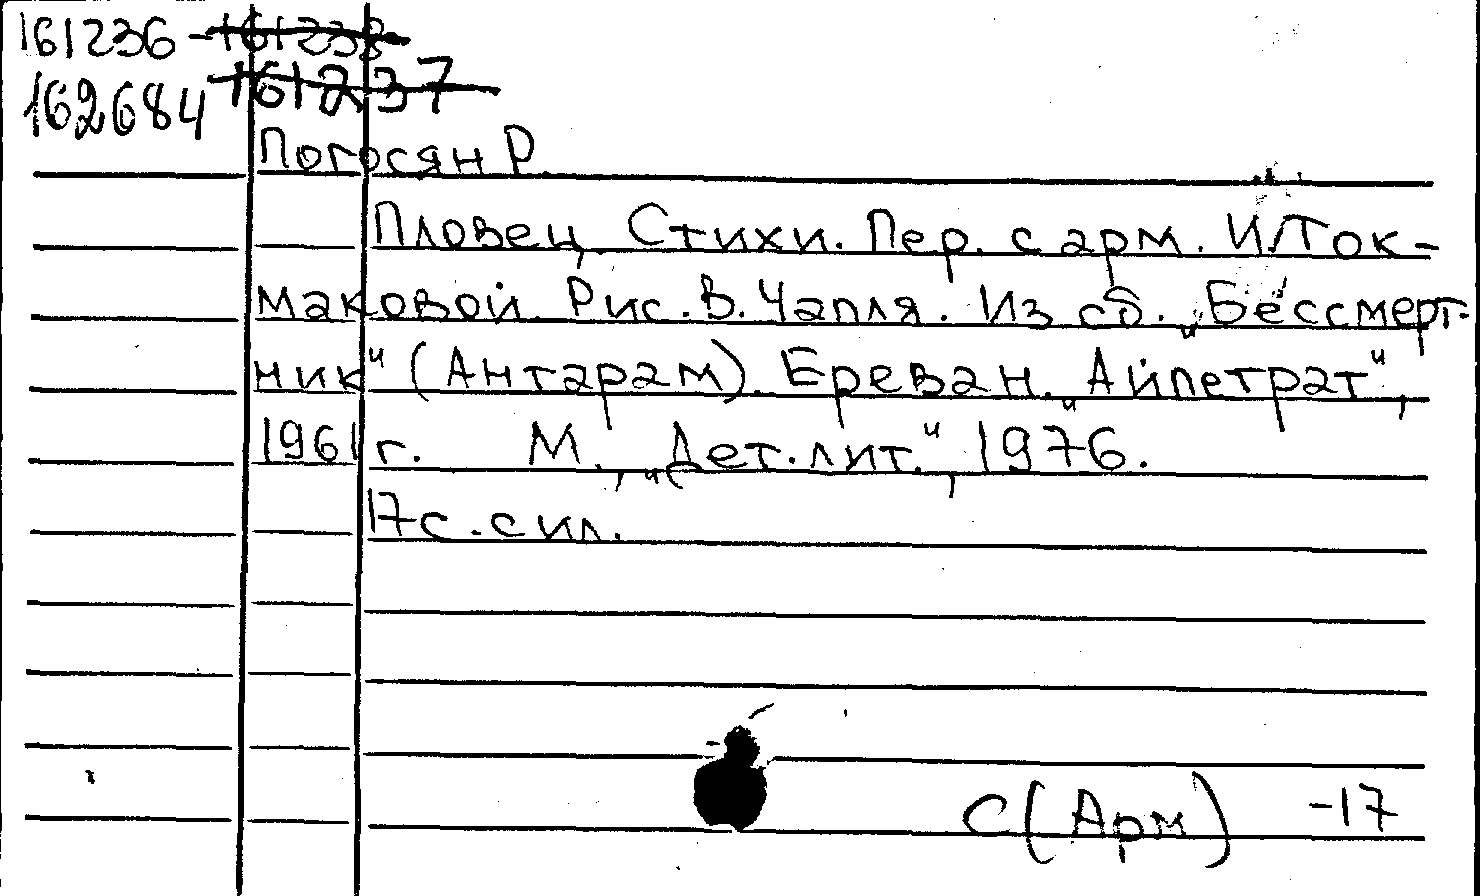 161236 - 161238
162684 161237
Погосян Р.
Пловец, Стихи. Пер. с арм. И/Ток-
маковой. Рис. В. Чапля. Из сб. „Бессмерт-
ник" (Антарам). Ереван. „Айпетрат",
1961 г. М., „Дет. лит.", 1976.
17 с. с ил.
С(Арм) -17